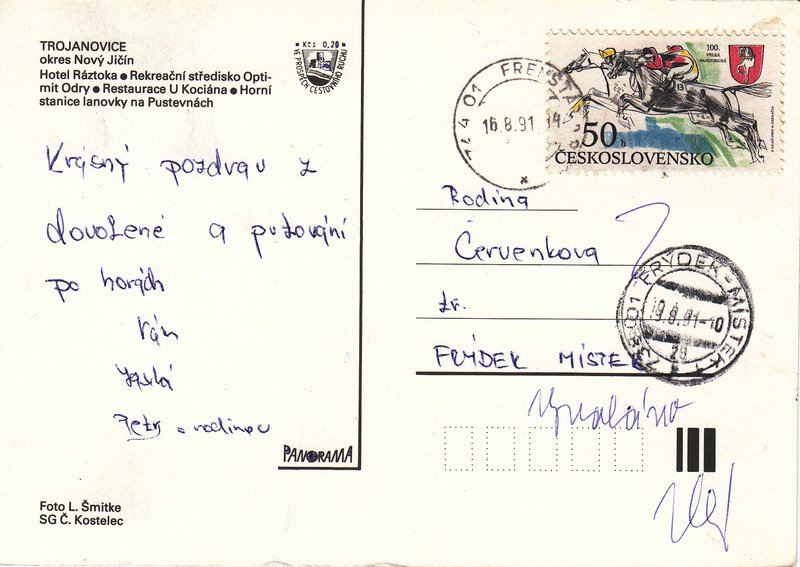 TROJANOVICE
okres Nový Jičín
Hotel Ráztoka ● Rekreační středisko Opti-
mit Odry ● Restaurace U Kociána ● Horní
stanice lanovky na Pustevnách
Kčs 0,20
VE PROSPĚCH CESTOVNÍHO RUCHU
Krásný pozdrav z
dovolené a putování
po horách
Vám
Petr s rodinou
PANORAMA
Foto L. Šmitke
SG Č. Kostelec
744 01 FRENŠTÁ
16.8.91
100.
VELKÁ
PARDUBICKÁ
13
50 h
ČESKOSLOVENSKO
Rodina
Červenkova
zr.
FRÝDEK MÍSTEK
738 01 FRÝDEK-MÍSTEK 1
19.8.91-10